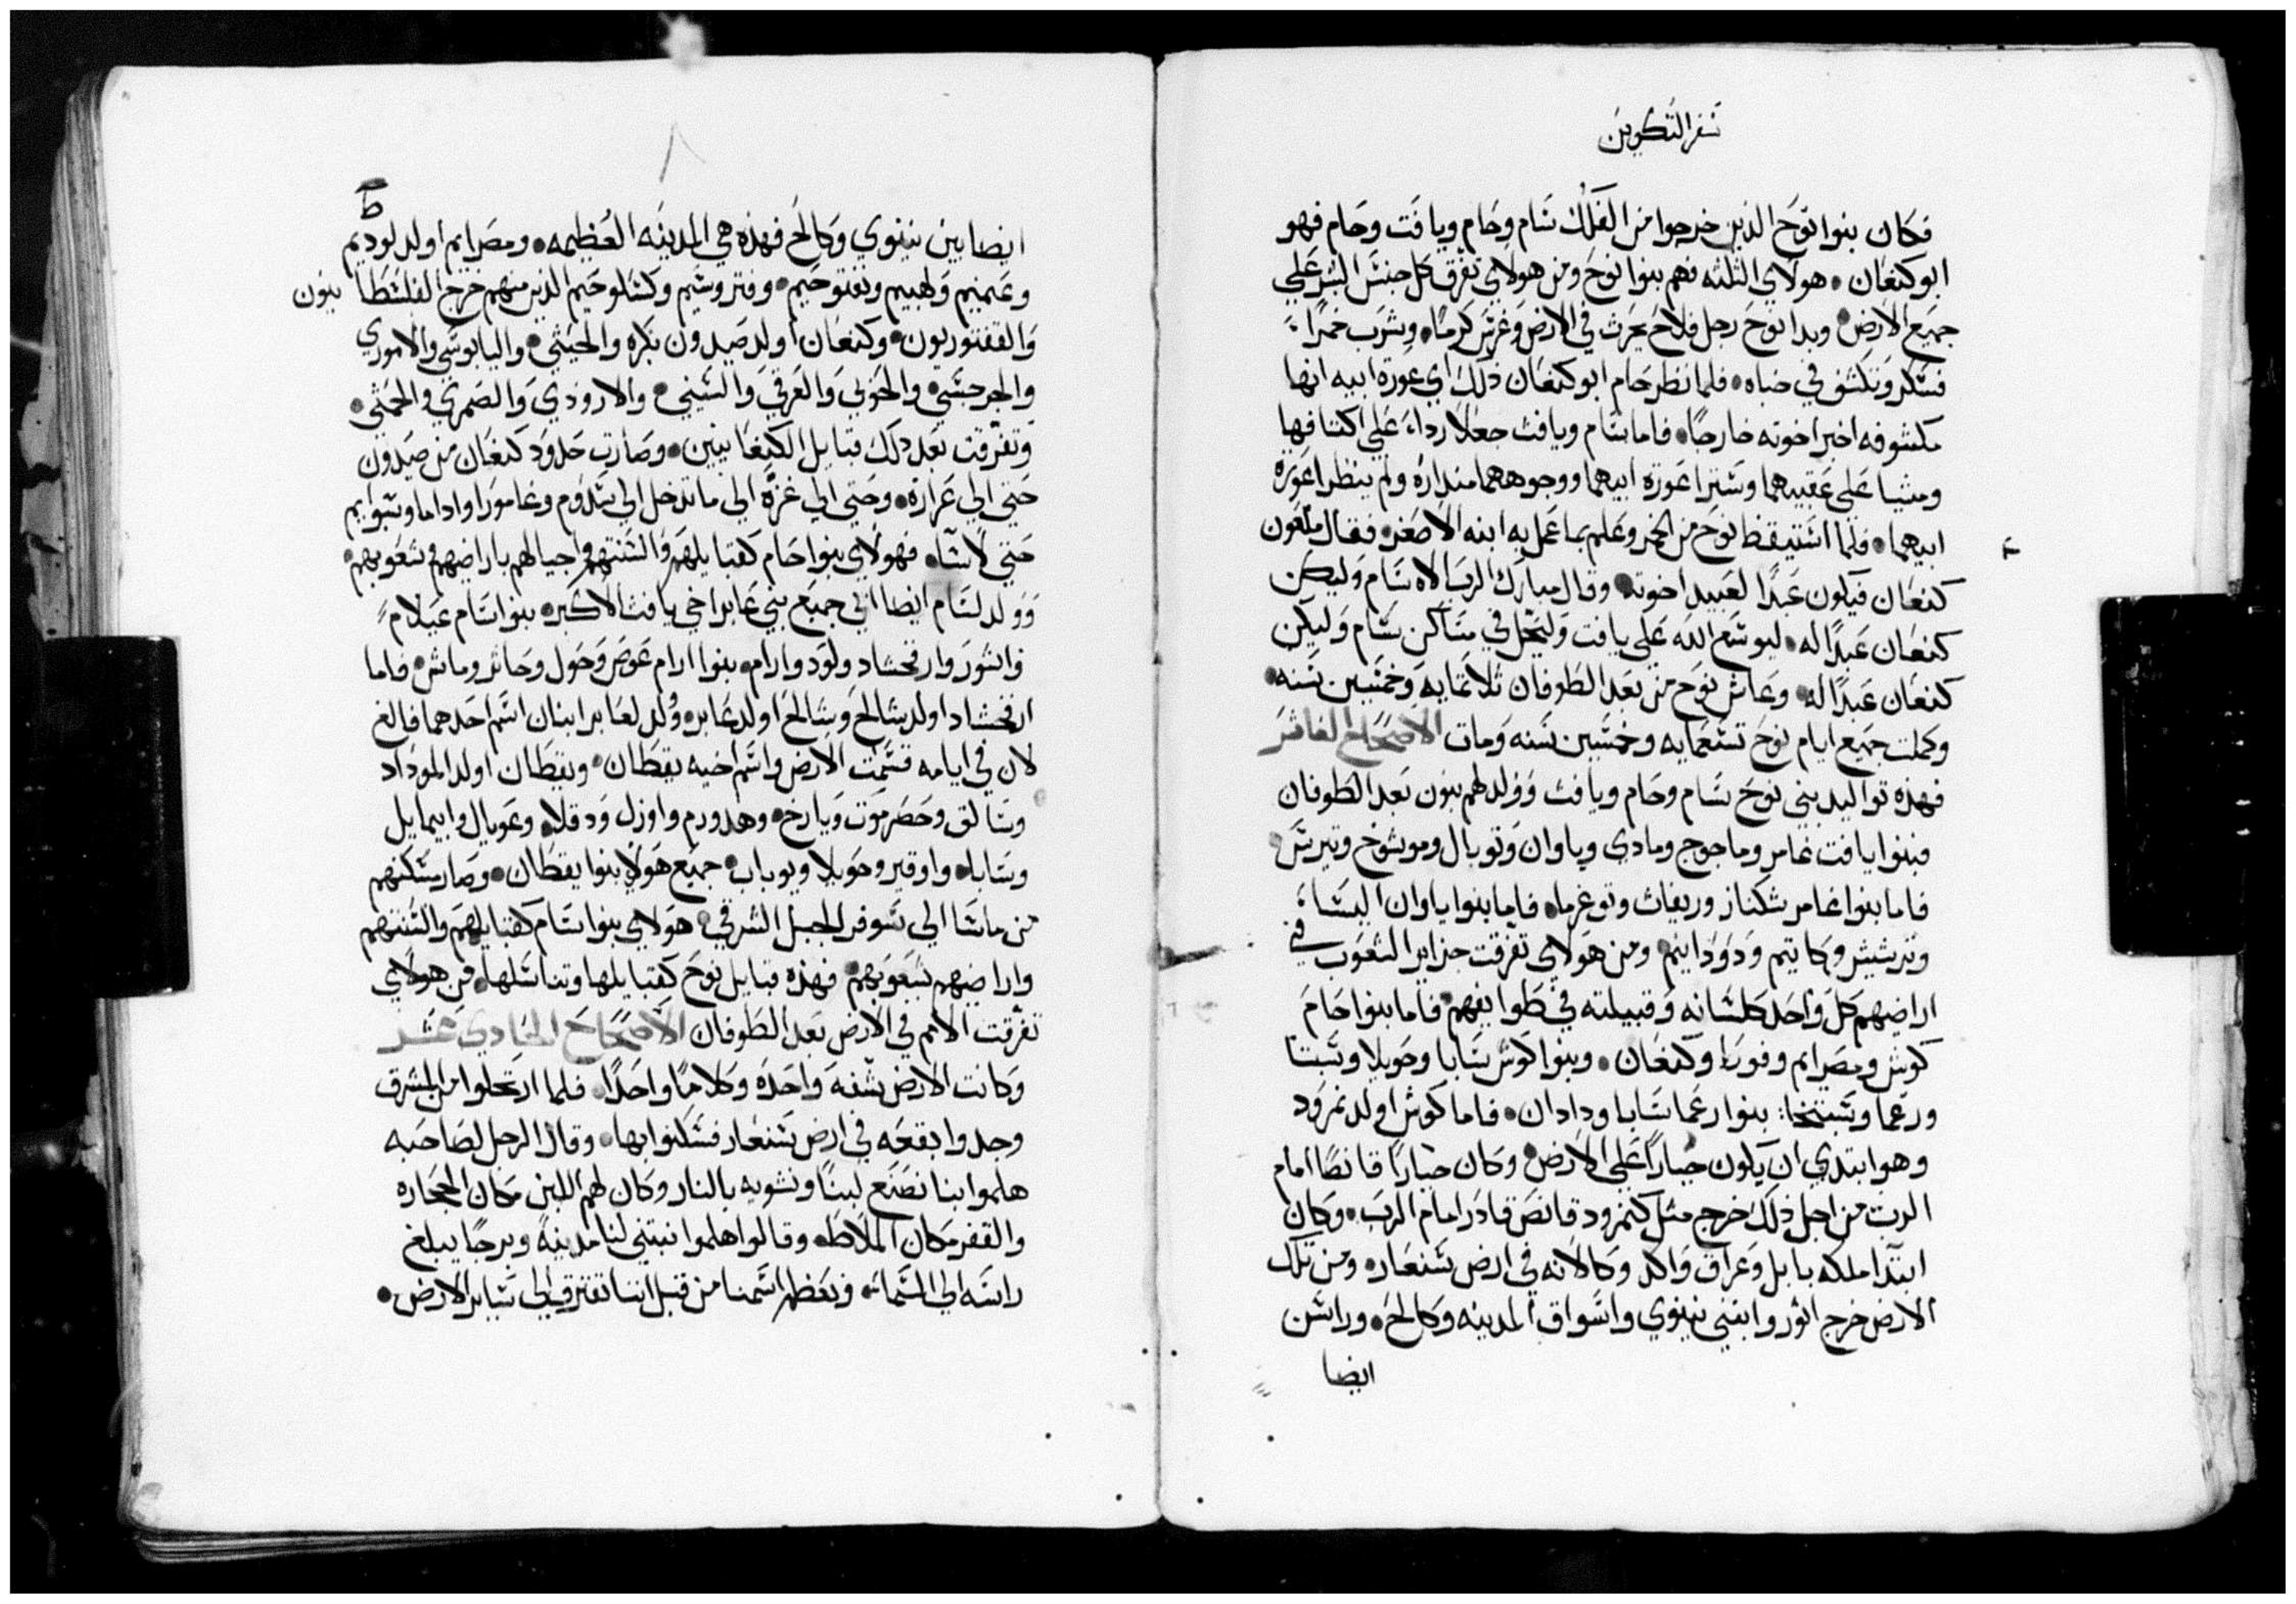 سفر التكوين
فكان بنوا نوح الذين خرجوا من الفلك سام وحام ويافت وحام فهو
ابو كنعان • هولاي الثلثه فهم بنوا نوح ومن هولاي تفرق كل جنس البشر علي
جميع الارض • وبدا نوح رجل فلاح يحرث في الارض وغرس كرمًا • وشرب خمرًا
فسكر وتكشف في خباه • فلما نظر حام ابو كنعان ذلك اي عورة ابيه انها
مكشوفه اخبر اخوته خارجًا • فاما سام ويافث جعلا رداء علي اكتافهما
ومشيا علي عقبيهما وسترا عورة ابيهما ووجوههما مداره ولم ينظرا عورة
ابيهما • فلما استيقظ نوح من الخمر وعلم بما عمل به ابنه الاصغر • فقال ملعون
كنعان فيكون عبدًا لعبيد اخوته • وقال مبارك الرب الاه سام وليكن
كنعان عبدًا له • ليوسع الله علي يافت وليحل في مساكن سام وليكن
كنعان عبدًا له • وعاش نوح من بعد الطوفان ثلاثمايه وخمسين سنه •
وكملت جميع ايام نوح تسعمايه وخمسين سنه ومات الاصحاح العاشر
فهذه تواليد بني نوح سام وحام ويافث وولد لهم بنون بعد الطوفان
فبنوا يافت غامر وماجوج ومادي وياوان وتوبال وموشوخ وتيرس •
فاما بنوا غامر شكناز وريفاث وتوغرما • فاما بنوا ياوان اليشا
وترشيش وكاتيم ودودانيم • ومن هولاي تفرقت جزاير الشعوب في
اراضيهم كل واحد كلسانه وقبيلته في طوايفهم • فاما بنوا حام
كوش ومصرايم وفوط وكنعان • وبنوا كوش سابا وحويلا وسبتا
ورعما وسبتخا: بنوا رعما سابا ودادان • فاما كوش اولد نمرود
وهو ابتدي ان يكون جبارًا علي الارض • وكان جبارًا قانصًا امام
الرب من اجل ذلك خرج مثل كنمرود قانص قادر امام الرب • وكان
ابتدا ملكه بابل وعراق واكد وكالانه في ارض سنعار • ومن تلك
الارض خرج اثور وابتني نينوي واسواق المدينه وكالح • وراسن
ايضا
ط
ايضا بين نينوي وكالح فهذه هي المدينه العظيمه • ومصرايم اولد لوديم
وعنميم ولهبيم ونفتوحيم • وفتروسيم وكسلوحيم الذين منهم خرج الفلسطانيون
والقفتوريون • وكنعان اولد صيدون بكره والحيثي • واليابوسي والاموري
والجرجسي • والحوي والعرقي والسيني • والارودي والصمري والحمثي •
وتفرقت بعد ذلك قبايل الكنعانيين • وصارت حدود كنعان من صيدون
حتي الي عراره • وحتي الي غزه الي ما تدخل الي سدوم وغامورا واداما وسبوايم
حتي لاشا • فهولاي بنوا حام كقبايلهم والسنتهم واجيالهم باراضيهم وشعوبهم •
وولد لسام ايضا ابي جميع بني عابر اخي يافث الاكبر • بنوا سام عيلام
واشور وارفخشاد ولود وارام • بنوا ارام عوص وحول وجاثر وماش • فاما
ارفخشاد اولد شالح وشالح اولد عابر • وولد لعابر ابنان اسم احدهما فالغ
لان في ايامه قسمت الارض واسم اخيه يقطان • ويقطان اولد الموداد
وسالق وحضرموت ويارخ • وهدورم واوزل ودقلا • وعوبال وابيمايل
وسابا • واوفير وحويلا ويوباب • جميع هولاي بنوا يقطان • وصار مسكنهم
من ماشا الي سوفر الجبل الشرقي • هولاي بنوا سام كقبايلهم والسنتهم
واراضيهم بشعوبهم • فهذه قبايل نوح كقبايلها وتناسلها • من هولاي
تفرقت الامم في الارض بعد الطوفان الاصحاح الحادي عشر
وكانت الارض شفه واحده وكلامًا واحدًا • فلما ارتحلوا من المشرق
وجدوا بقعه في ارض شنعار فسكنوا بها • وقال الرجل لصاحبه
هلموا بنا نصنع لبنًا ونشويه بالنار وكان لهم اللبن مكان الحجاره
والقفر مكان الملاط • وقالوا هلموا نبتني لنا مدينةً وبرجًا يبلغ
راسه الي السماء • ونعظم اسمنا من قبل اننا نفترق الي ساير الارض •